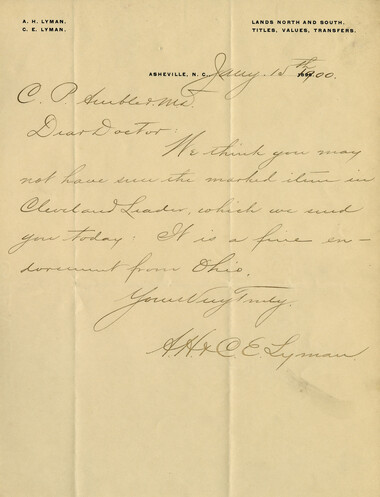 A. H. LYMAN.
C. E. LYMAN.
LANDS NORTH AND SOUTH.
TITLES, VALUES, TRANSFERS.
ASHEVILLE, N. C. Jany. 15th 1900.
C. P. Ambler Md.
Dear Doctor:
We think you may
not have seen the marked item in
Cleveland Leader, which we send
you today. It is a fine en-
dorsement from Ohio.
Yours Very Truly.
A. H. & C E Lyman.